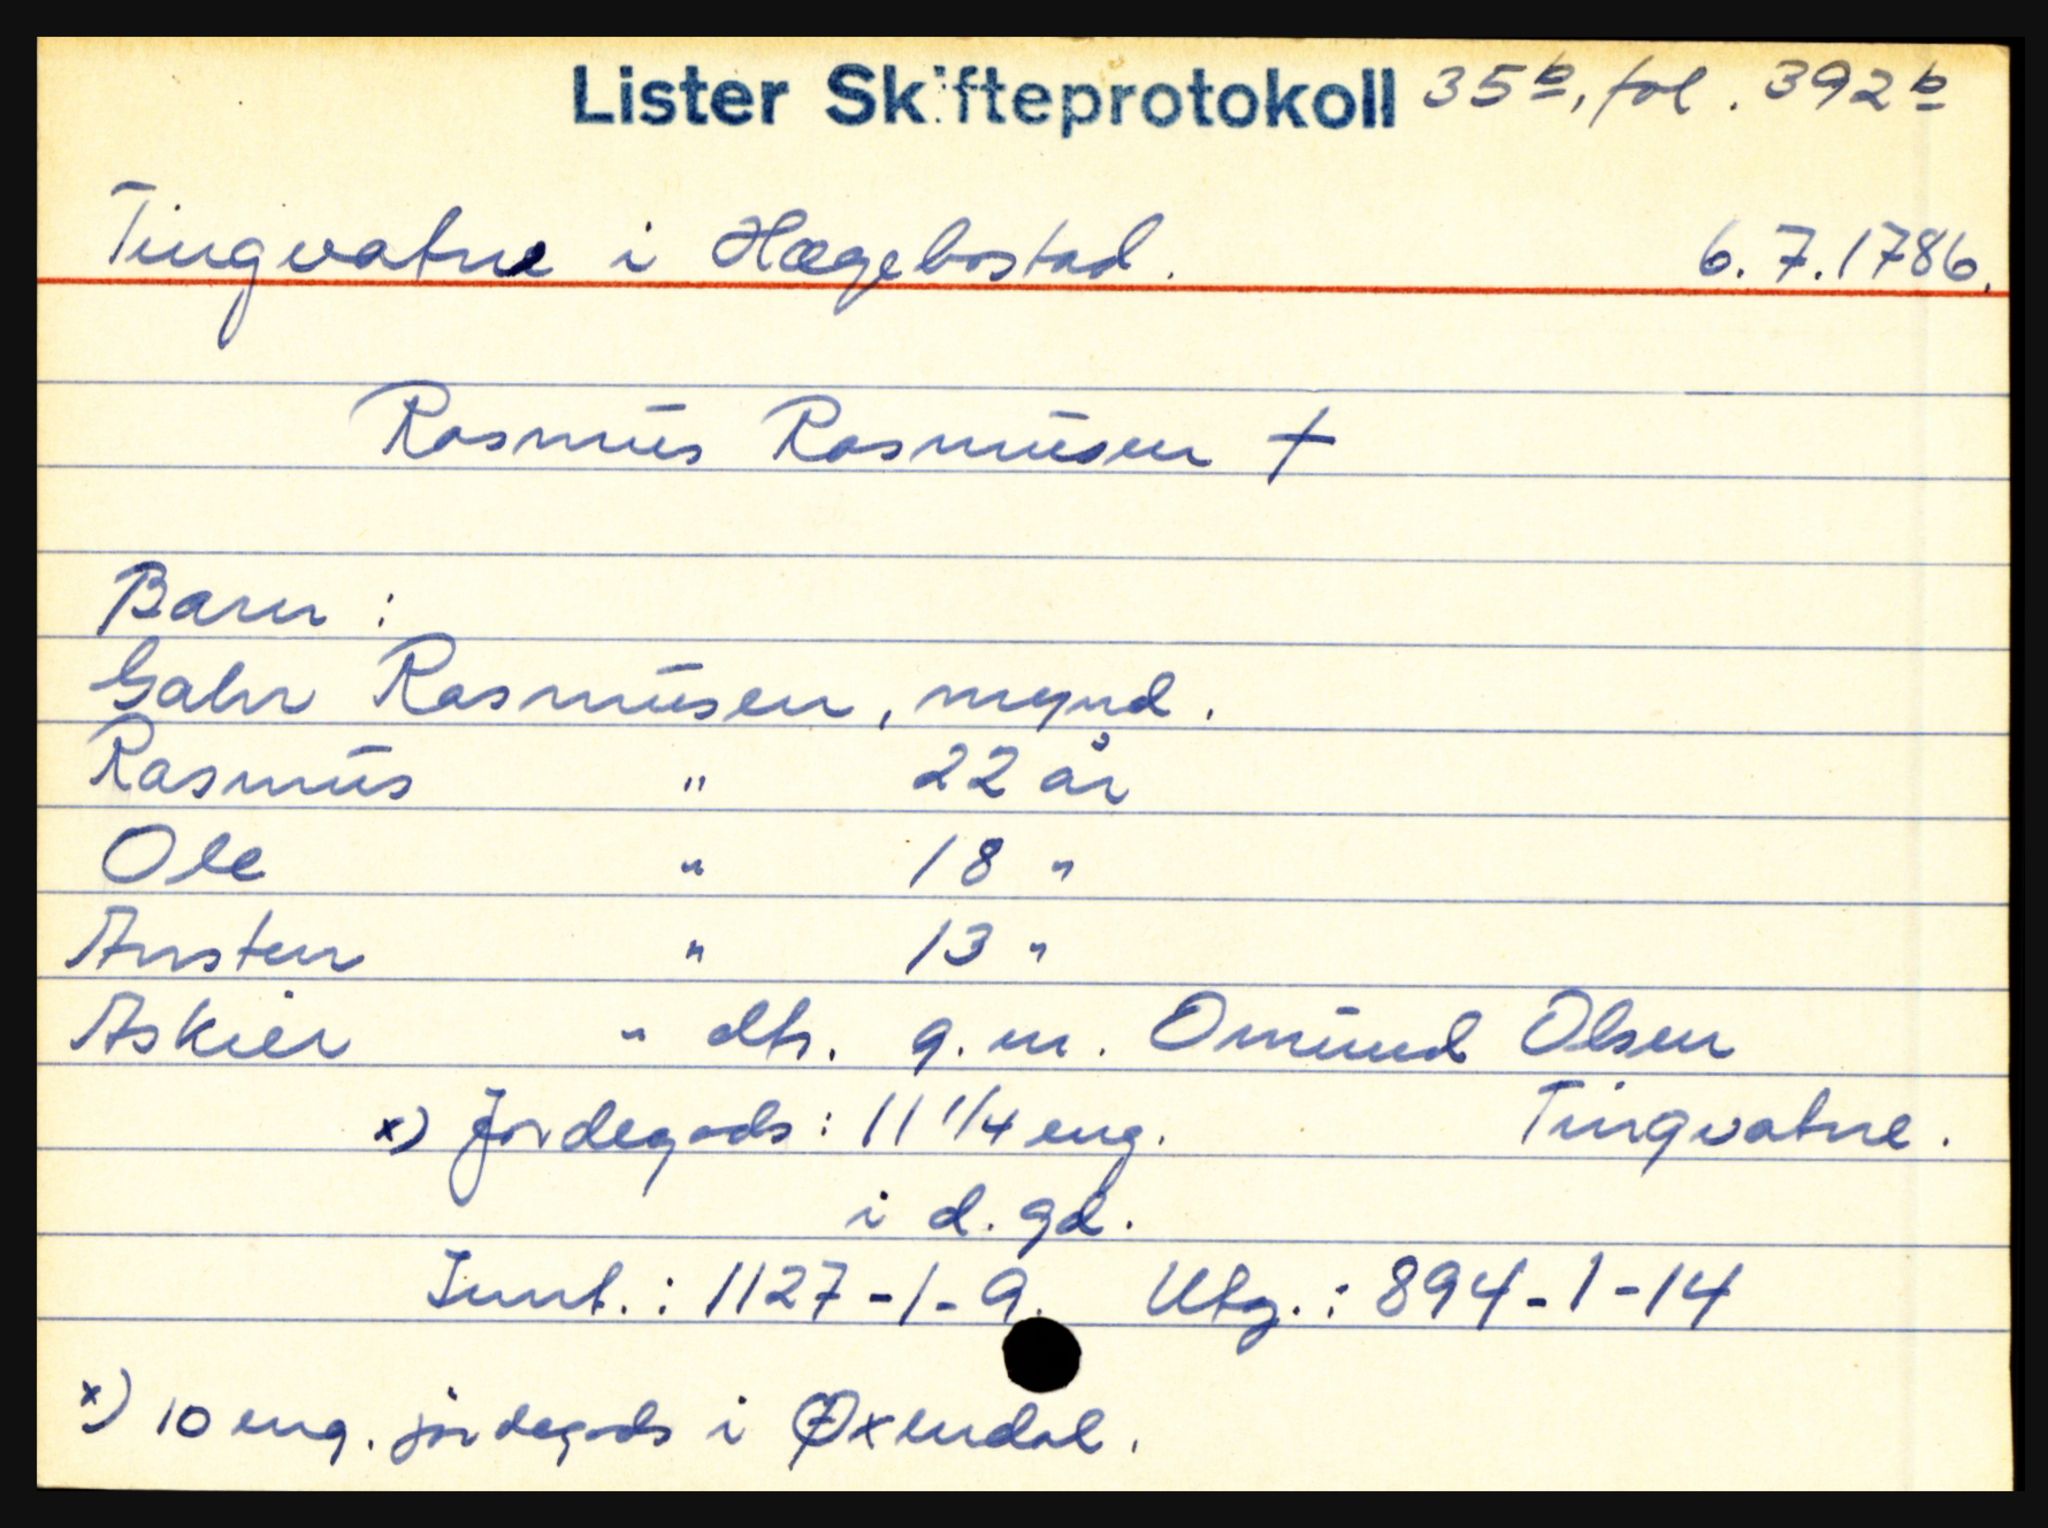 Lister Skifteprotokoll 35b, fol. 392b
Tingvatne i Hægebostad. 6.7.1786.
Rasmus Rasmusen †
Barn:
Gahr Rasmusen, mynd.
Rasmus " 22 år
Ole " 18 "
Ansten " 13 "
Askier " dtr. g.m. Omund Olsen
x) Jordegods: 11 1/4 eng. Tingvatne.
i d. gd.
Innt.: 1127-1-9. Utg.: 894-1-14
x) 10 eng. jordegods i Øxendal.